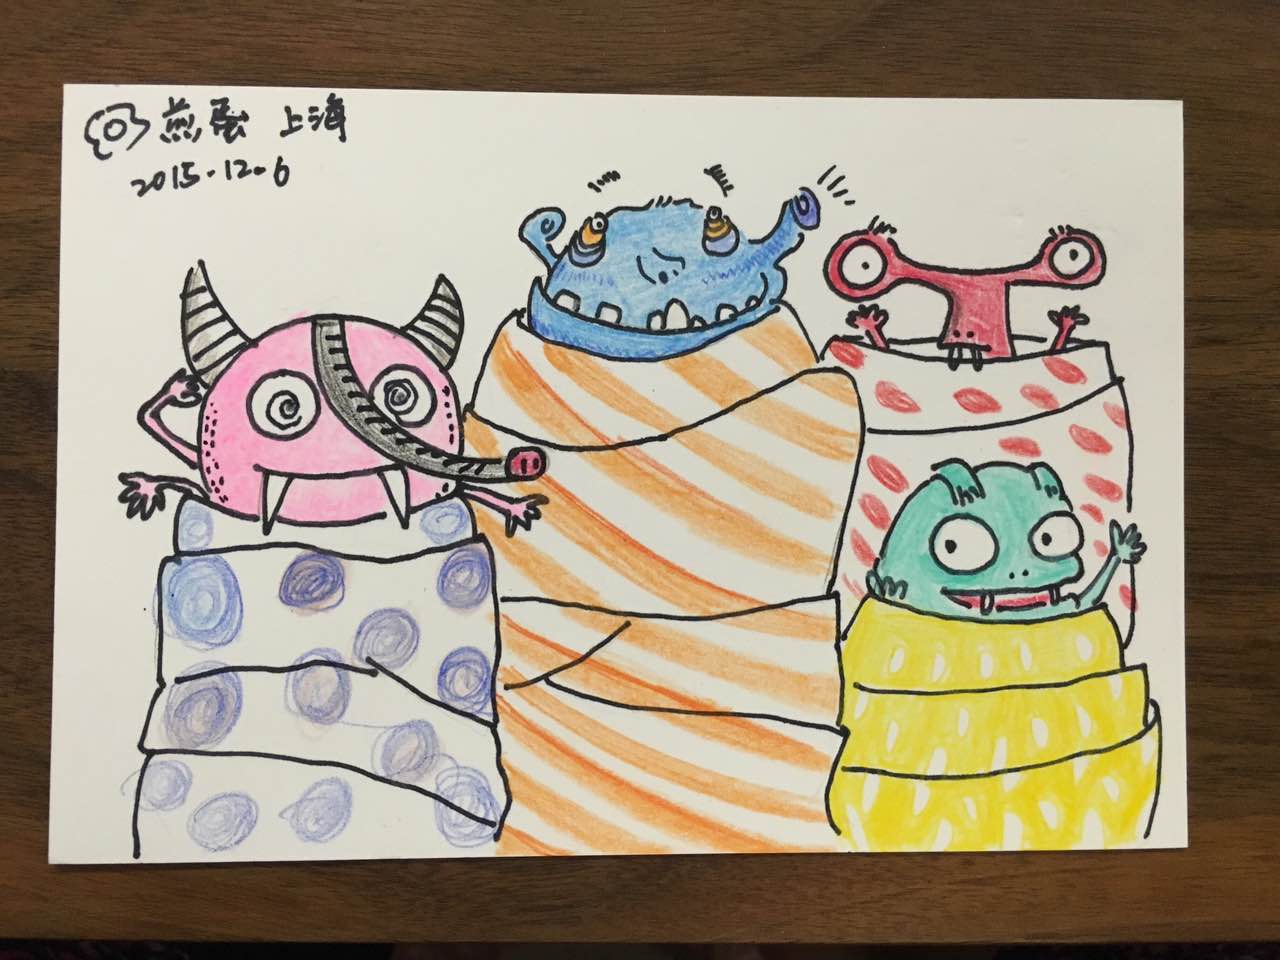 煎蛋 上海
2015.12.6